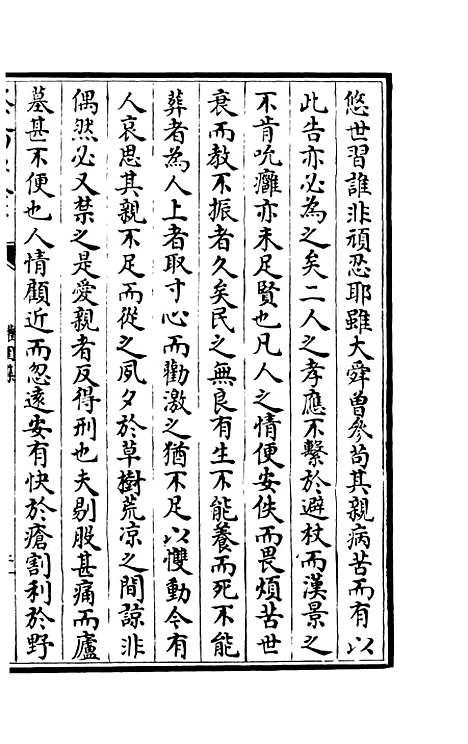 悠世習誰非頑忍耶雖大舜曾參苟其親病苦而有以
此告亦必為之矣二人之孝應不繫於避杖而漢景之
不肯吮癰亦未足賢也凡人之情便安佚而畏煩苦世
衰而教不振者久矣民之無良有生不能養而死不能
葬者為人上者取寸心而勸激之猶不足以慫動今有
人哀思其親不足而從之夙夕於草樹荒凉之間諒非
偶然必又禁之是愛親者反得刑也夫剔股甚痛而廬
墓甚不便也人情顧近而忽遠安有快於瘡割利於野